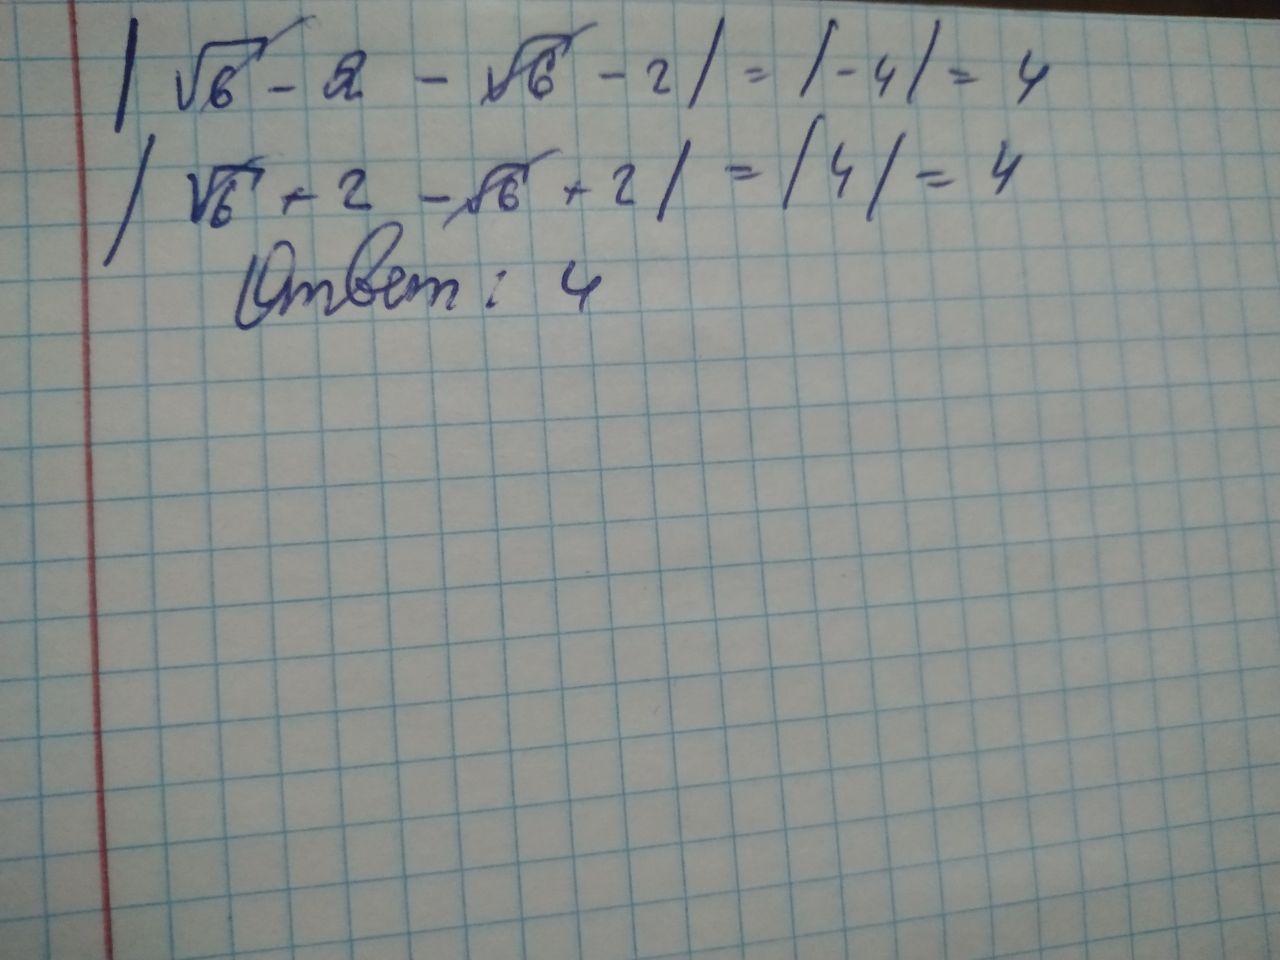 | √6 - 2 - √6 - 2 | = | - 4 | = 4
| √6 + 2 - √6 + 2 | = | 4 | = 4
Ответ: 4